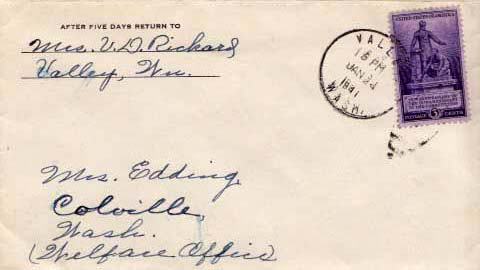 AFTER FIVE DAYS RETURN TO
Mrs. V. D. Rickard
Valley, Wn.
VALLEY
PM
JAN 24
1941
WASH.
UNITED STATES OF AMERICA
POSTAGE 3 CENTS
Mrs. Edding
Colville,
Wash.
(Welfare Office)